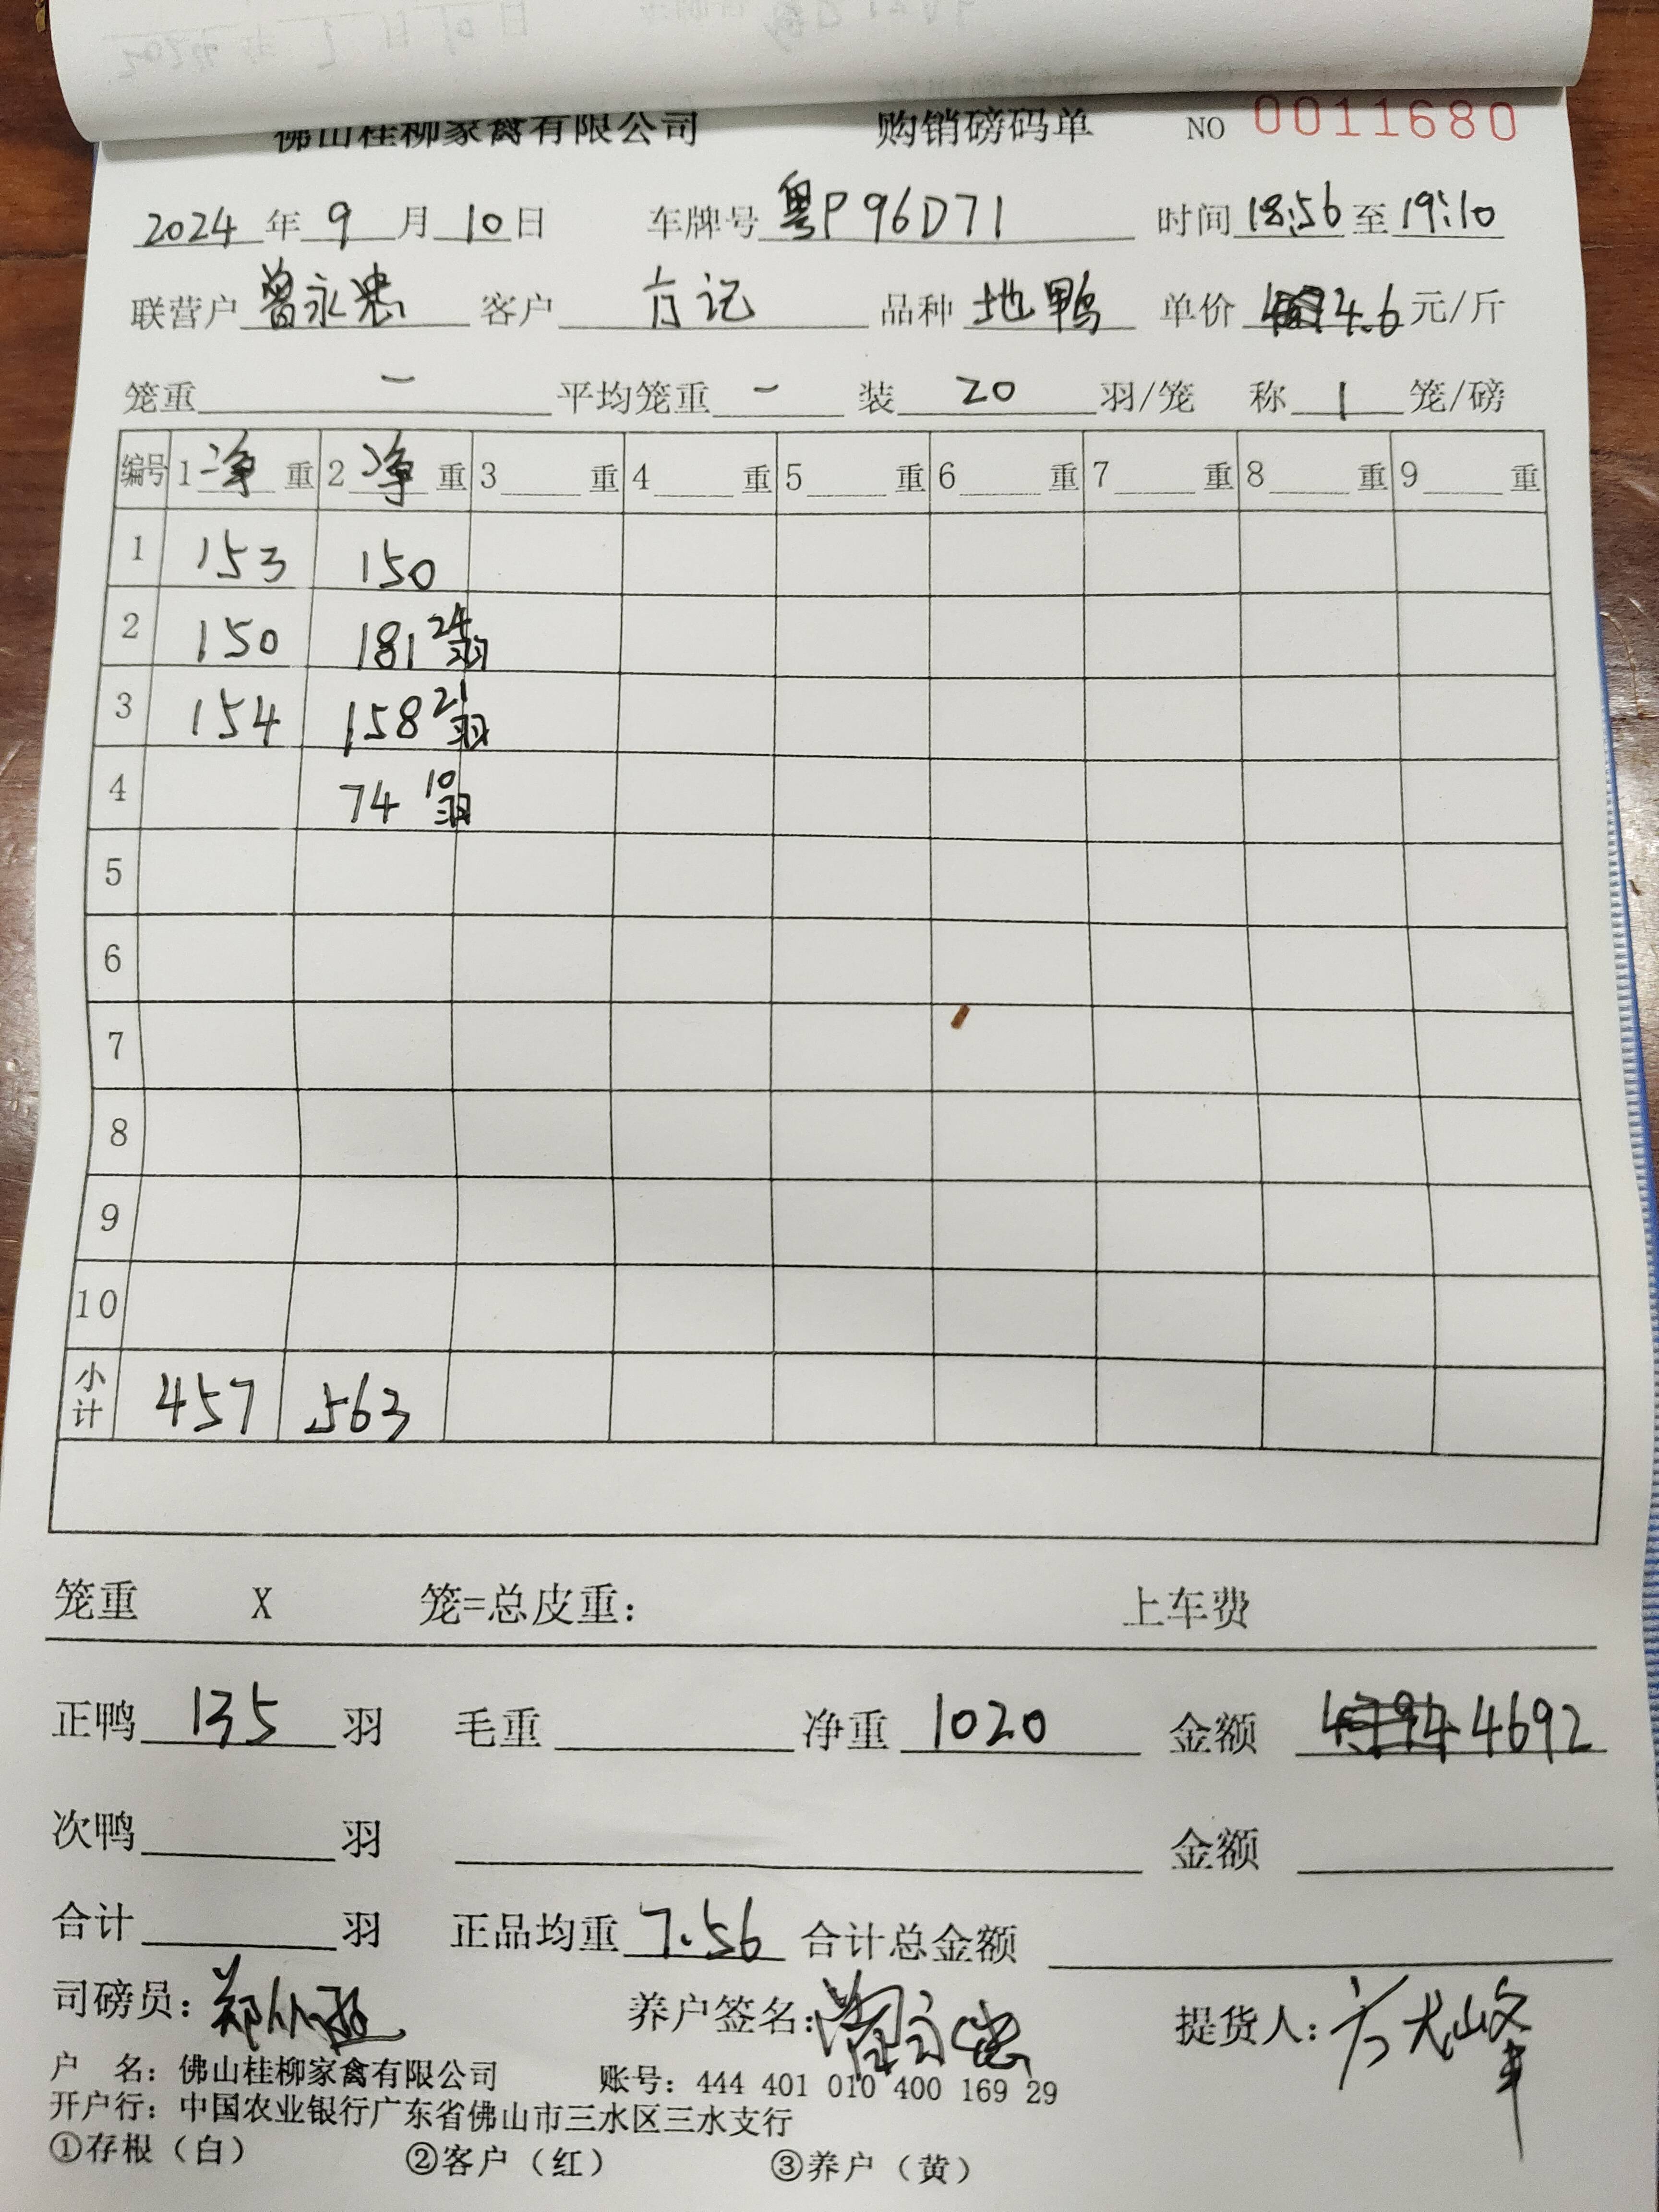 佛山桂柳家禽有限公司 购销磅码单 NO 0011680
2024年9月10日 车牌号粤P96D71 时间18:56至19:10
联营户曾永忠 客户方记 品种地鸭 单价4.6元/斤
笼重一 平均笼重一 装20羽/笼 称1笼/磅
编号 1净重 2净重 3重 4重 5重 6重 7重 8重 9重
1 153 150
2 150 181 24羽
3 154 158 21羽
4 74 10羽
5
6
7
8
9
10
小计 457 563
笼重 X 笼=总皮重: 上车费
正鸭135羽 毛重 净重1020 金额4692
次鸭 羽 金额
合计 羽 正品均重7.56 合计总金额
司磅员:郑 养户签名:曾永忠 提货人:方
户 名: 佛山桂柳家禽有限公司 账号: 444 401 010 400 169 29
开户行: 中国农业银行广东省佛山市三水区三水支行
①存根(白) ②客户(红) ③养户(黄)